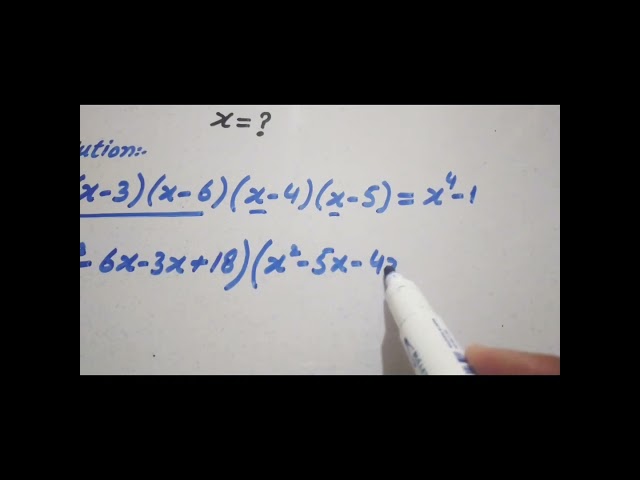 x = ?
ution:-
(x-3)(x-6)(x-4)(x-5) = x⁴-1
- 6x-3x+18)(x²-5x-4